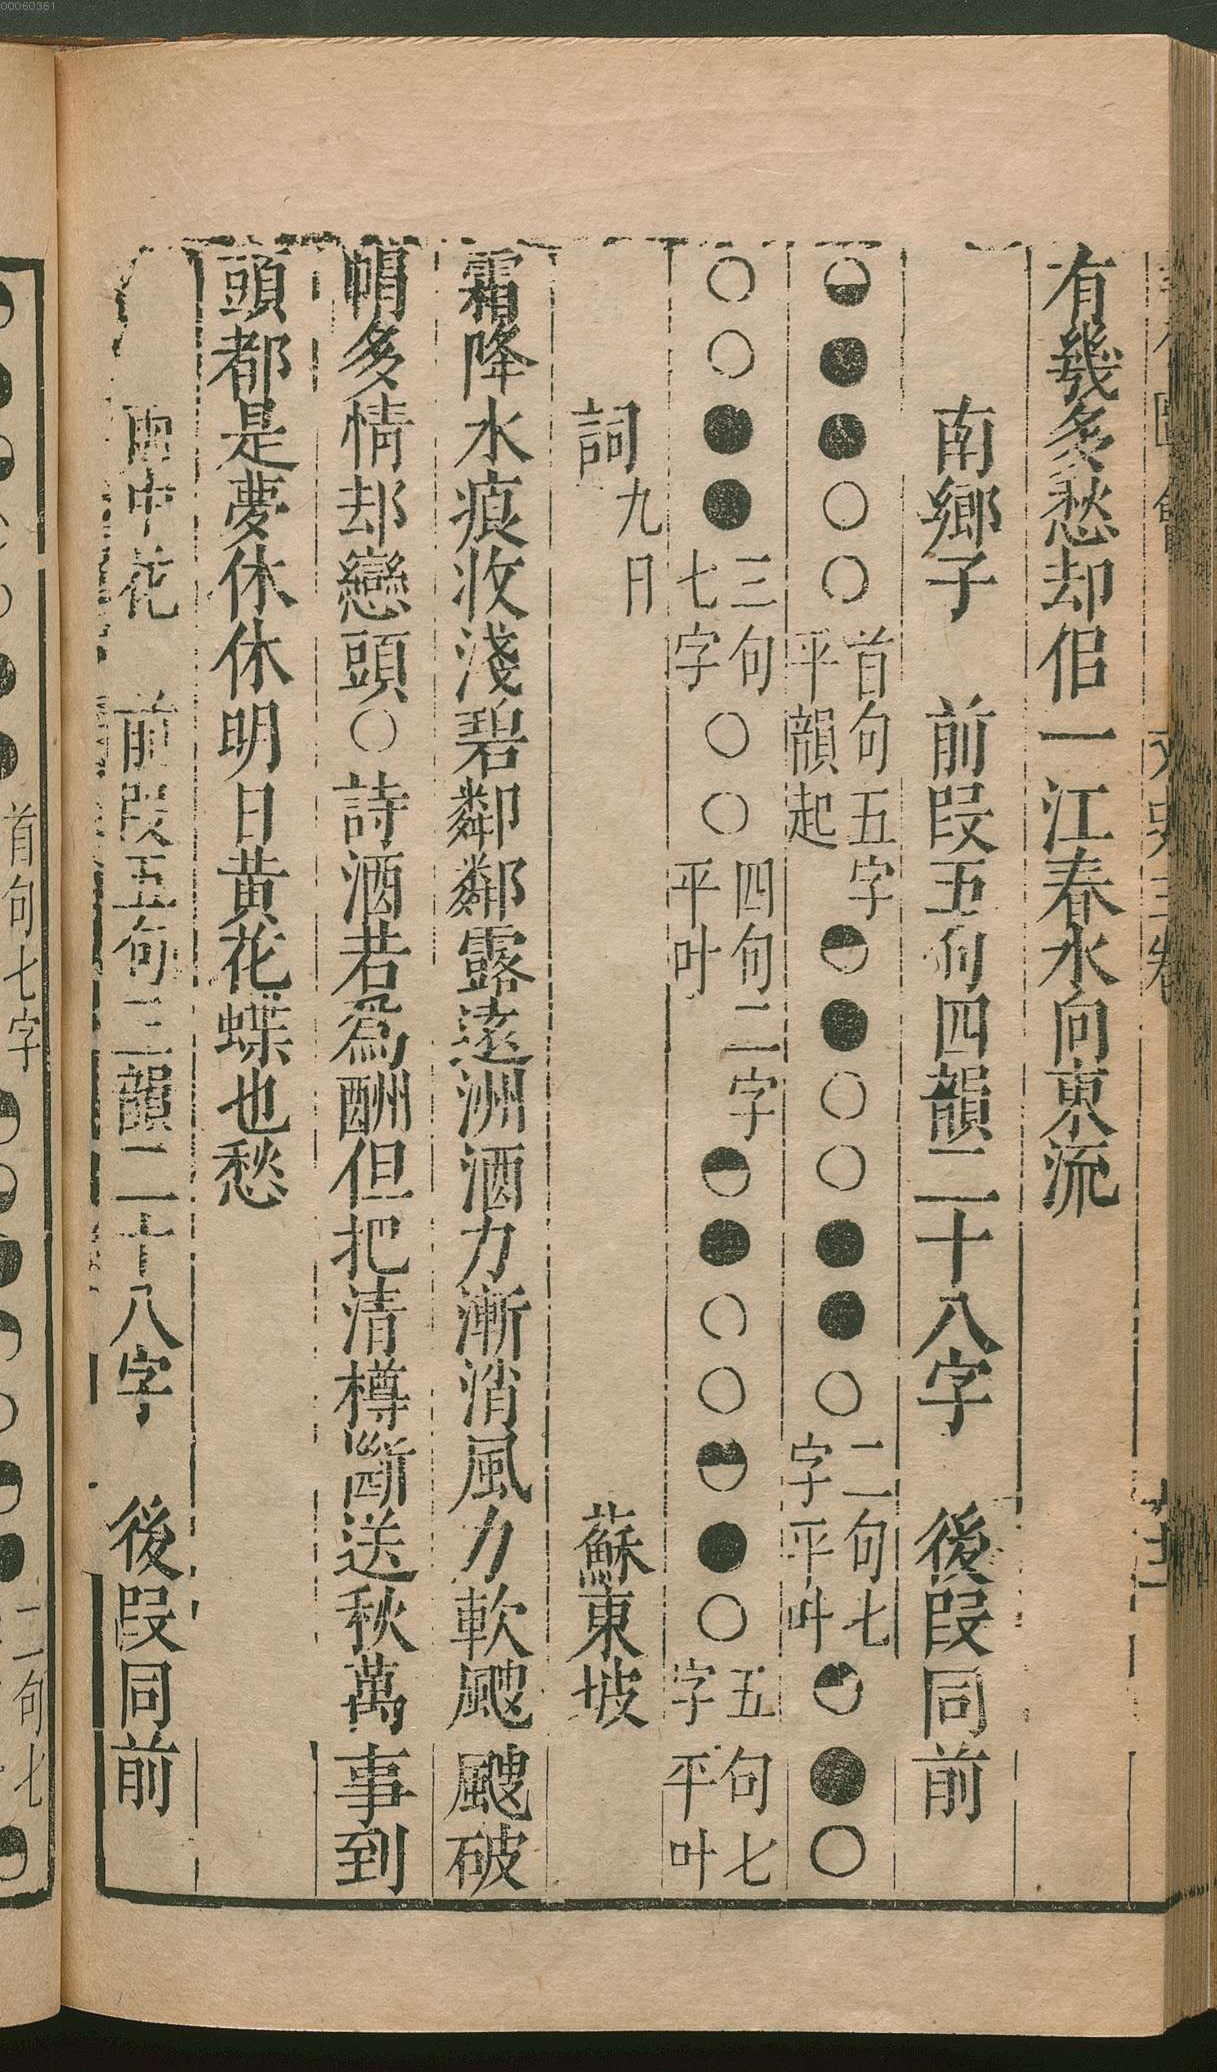 00060361
有幾多愁却佀一江春水向東流
南鄉子　前段五句四韻二十八字　後段同前
◒●●○○首句五字平韻起◓●○○●●○二句七字平叶◒●○
○○●●三句七字○○四句二字平叶◓●○○◒●○五句七字平叶
詞九日　蘇東坡
霜降水痕收淺碧鄰鄰露遠洲酒力漸消風力軟颼颼破
帽多情却戀頭○詩酒若爲酬但把清樽斷送秋萬事到
頭都是夢休休明日黄花蝶也愁
雨中花　前段五句三韻二十八字　後段同前
首句七字
二句七